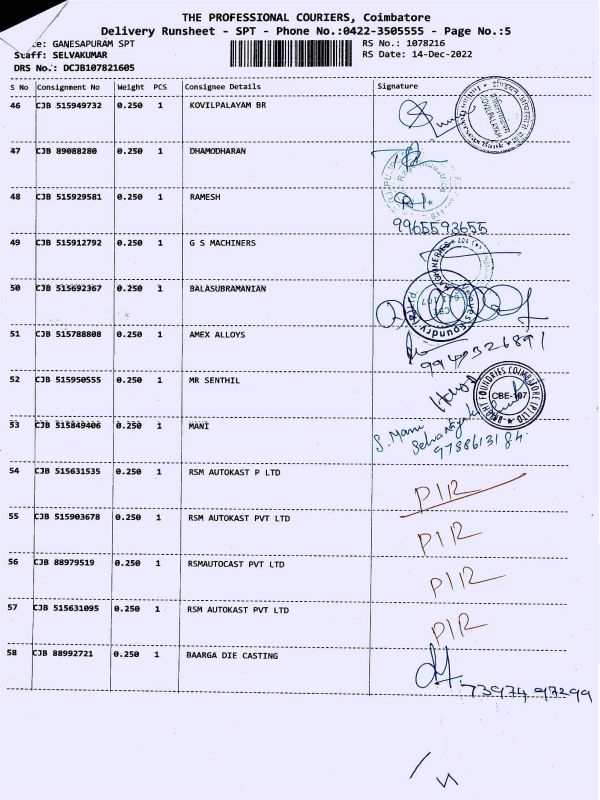 THE PROFESSIONAL COURIERS, Coimbatore
Delivery Runsheet - SPT - Phone No.:0422-3505555 - Page No.:5
GANESAPURAM SPT
RS No.: 1078216
Staff: SELVAKUMAR
RS Date: 14-Dec-2022
DRS No.: DCJB107821605
S No Consignment No Weight PCS Consignee Details Signature
46 CJB 515949732 0.250 1 KOVILPALAYAM BR
KOVILPALAYAM
Overseas Bank
47 CJB 89088280 0.250 1 DHAMODHARAN
48 CJB 515929581 0.250 1 RAMESH
9965593655
49 CJB 515912792 0.250 1 G S MACHINERS
50 CJB 515692367 0.250 1 BALASUBRAMANIAN
Foundry (P) Ltd.
51 CJB 515788808 0.250 1 AMEX ALLOYS
9940326891
52 CJB 515950555 0.250 1 MR SENTHIL
FOUNDRIES COIMBATORE (P) LTD
CBE-107
53 CJB 515849406 0.250 1 MANI
S. Mani
9788613184
54 CJB 515631535 0.250 1 RSM AUTOKAST P LTD
PIR
55 CJB 515903678 0.250 1 RSM AUTOKAST PVT LTD
PIR
56 CJB 88979519 0.250 1 RSMAUTOCAST PVT LTD
PIR
57 CJB 515631095 0.250 1 RSM AUTOKAST PVT LTD
PIR
58 CJB 88992721 0.250 1 BAARGA DIE CASTING
73974 97299